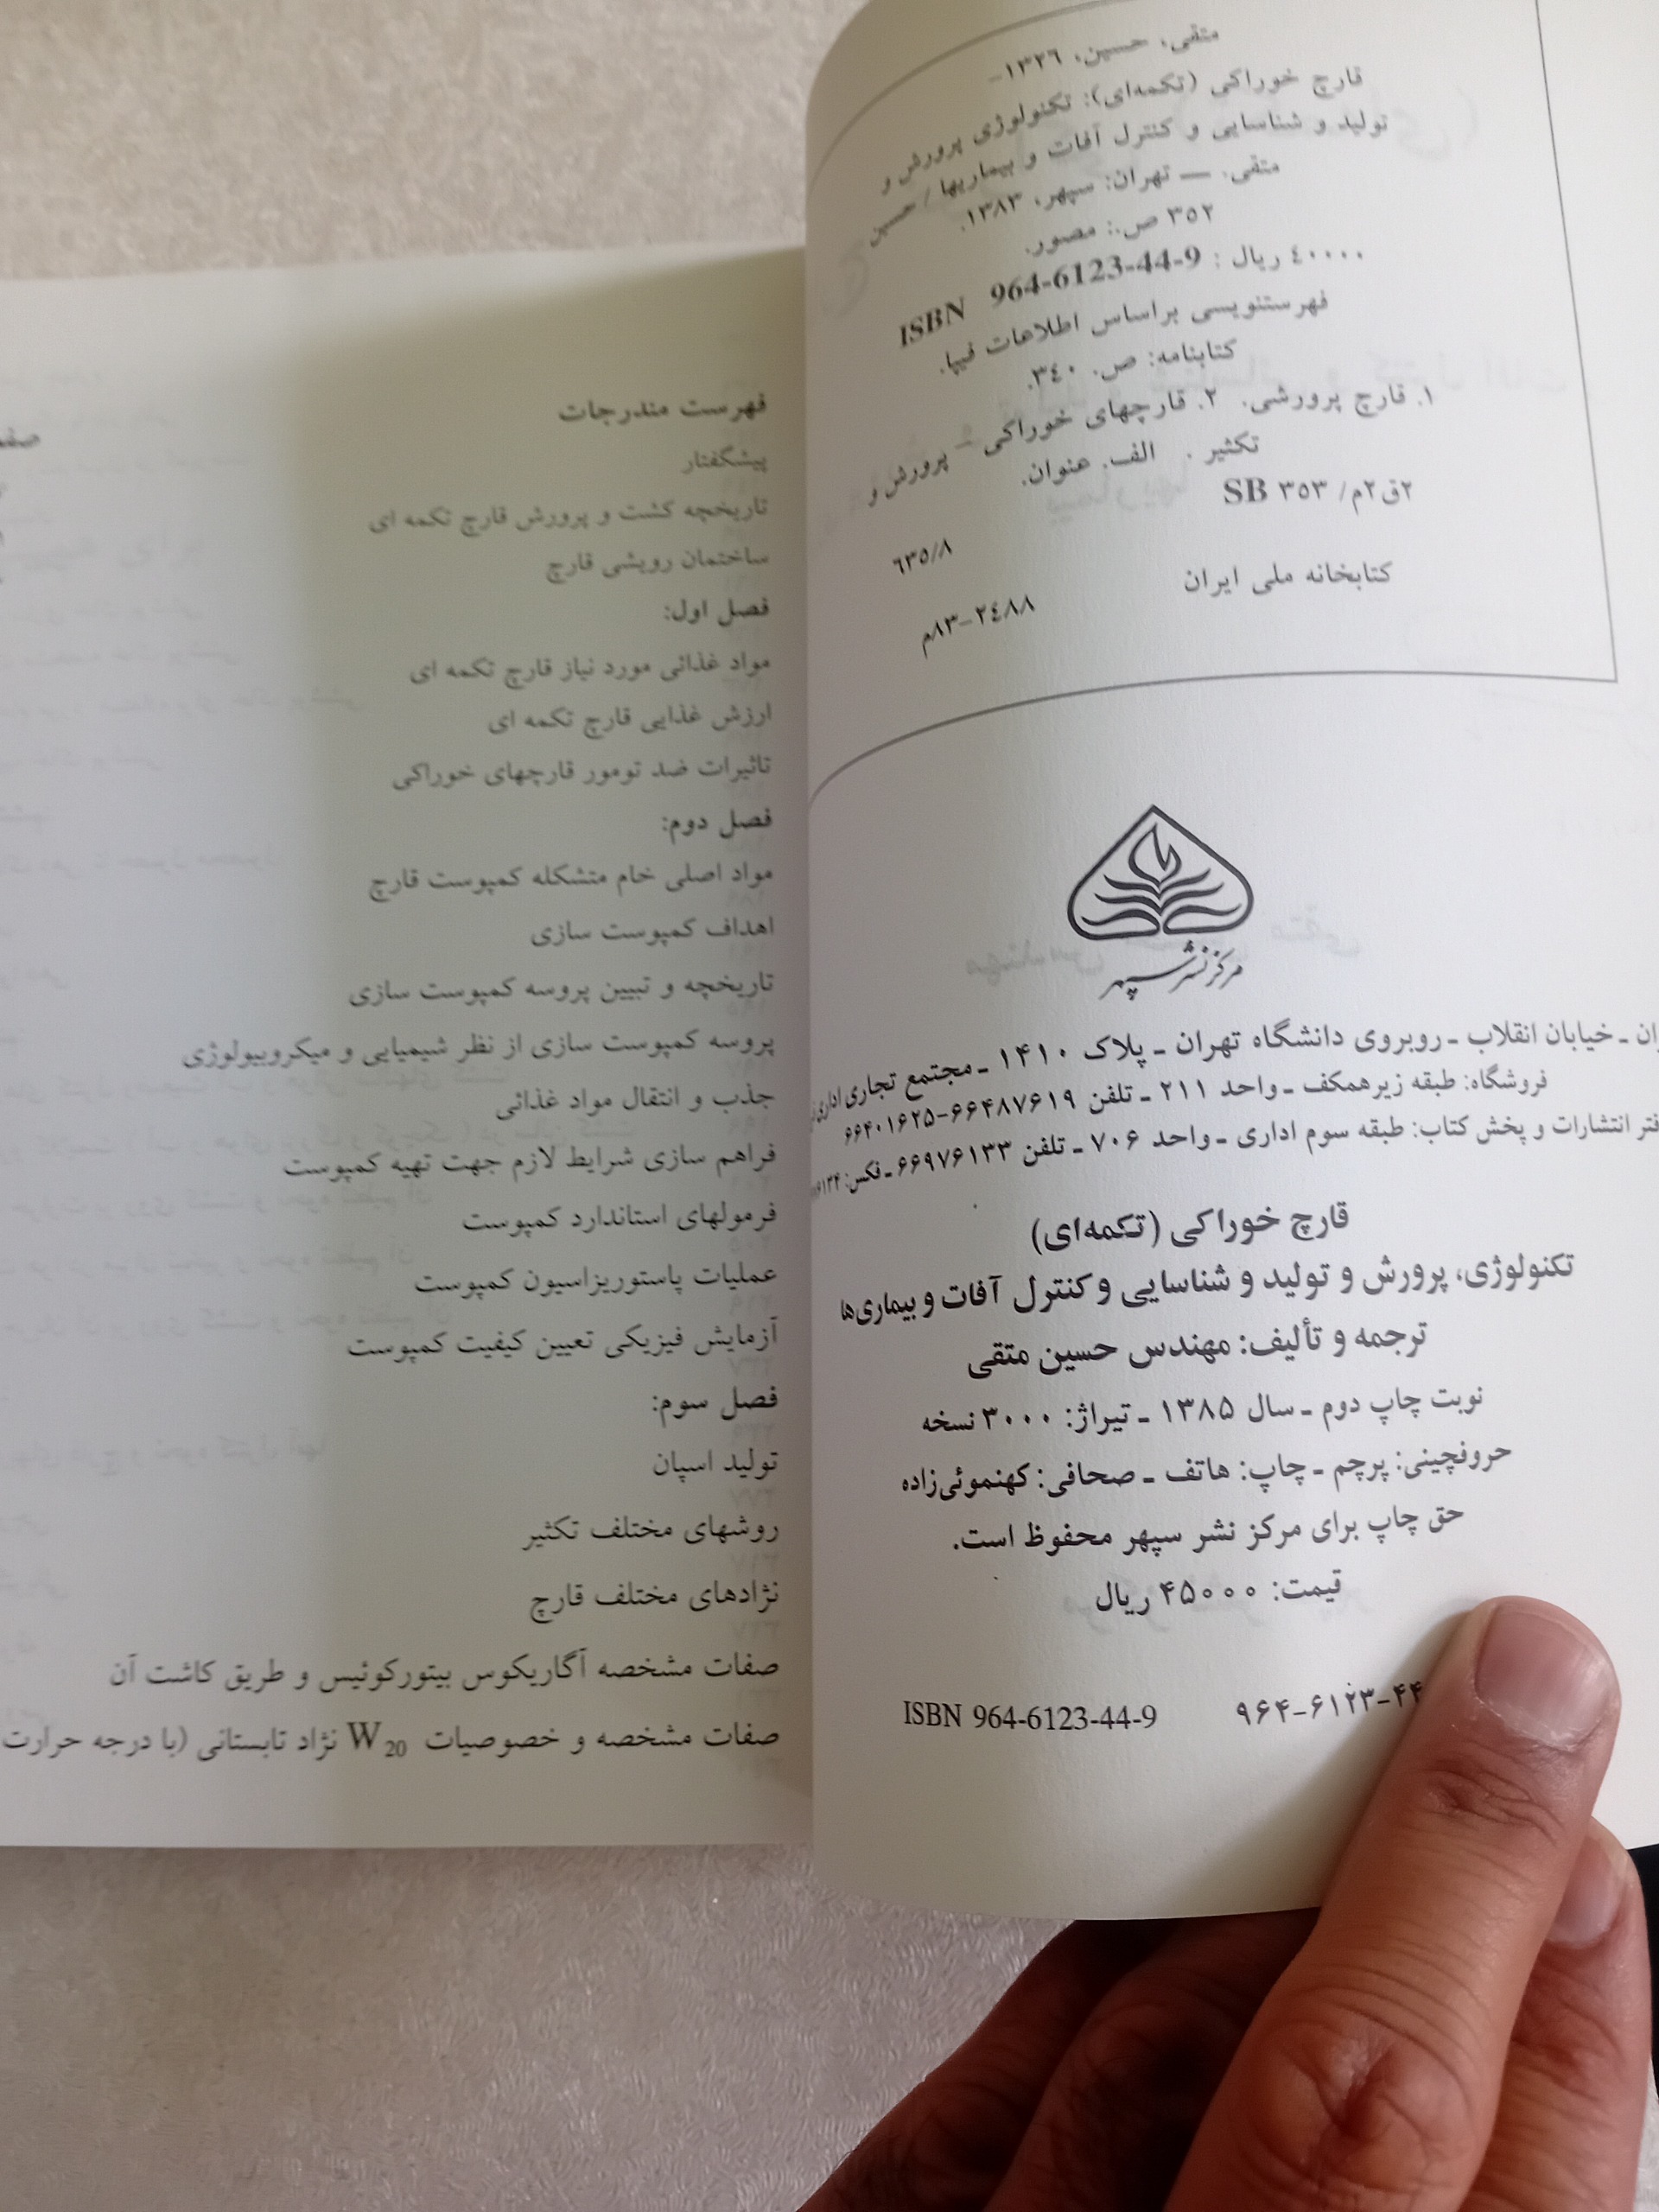 متقی، حسین، ۱۳۲۶-
قارچ خوراکی (تکمه‌ای): تکنولوژی پرورش و
تولید و شناسایی و کنترل آفات و بیماریها / حسین
متقی. — تهران: سپهر، ۱۳۸۳.
۳۵۲ ص.: مصور.
ISBN 964-6123-44-9 : ۴۰۰۰۰ ریال
فهرستنویسی براساس اطلاعات فیپا.
کتابنامه: ص. ۳۴۰.
۱. قارچ پرورشی. ۲. قارچهای خوراکی – پرورش و
تکثیر . الف. عنوان.
۲ق۲م/ SB ۳۵۳
۶۳۵/۸
کتابخانه ملی ایران
۸۳–۲۴۸۸م
مرکز نشر سپهر
ـ خیابان انقلاب ـ روبروی دانشگاه تهران ـ پلاک ۱۴۱۰ ـ مجتمع تجاری اداری
فروشگاه: طبقه زیرهمکف ـ واحد ۲۱۱ ـ تلفن ۶۶۴۸۷۶۱۹-۶۶۴۰۱۶۲۵
فتر انتشارات و پخش کتاب: طبقه سوم اداری ـ واحد ۷۰۶ ـ تلفن ۶۶۹۷۶۱۳۳ ـ فکس:
قارچ خوراکی (تکمه‌ای)
تکنولوژی، پرورش و تولید و شناسایی و کنترل آفات و بیماری‌ها
ترجمه و تألیف: مهندس حسین متقی
نوبت چاپ دوم ـ سال ۱۳۸۵ ـ تیراژ: ۳۰۰۰ نسخه
حروفچینی: پرچم ـ چاپ: هاتف ـ صحافی: کهنموئی‌زاده
حق چاپ برای مرکز نشر سپهر محفوظ است.
قیمت: ۴۵۰۰۰ ریال
ISBN 964-6123-44-9 ۹۶۴-۶۱۲۳-۴۴
فهرست مندرجات
پیشگفتار
تاریخچه کشت و پرورش قارچ تکمه ای
ساختمان رویشی قارچ
فصل اول:
مواد غذائی مورد نیاز قارچ تکمه ای
ارزش غذایی قارچ تکمه ای
تاثیرات ضد تومور قارچهای خوراکی
فصل دوم:
مواد اصلی خام متشکله کمپوست قارچ
اهداف کمپوست سازی
تاریخچه و تبیین پروسه کمپوست سازی
پروسه کمپوست سازی از نظر شیمیایی و میکروبیولوژی
جذب و انتقال مواد غذائی
فراهم سازی شرایط لازم جهت تهیه کمپوست
فرمولهای استاندارد کمپوست
عملیات پاستوریزاسیون کمپوست
آزمایش فیزیکی تعیین کیفیت کمپوست
فصل سوم:
تولید اسپان
روشهای مختلف تکثیر
نژادهای مختلف قارچ
صفات مشخصه آگاریکوس بیتورکوئیس و طریق کاشت آن
صفات مشخصه و خصوصیات W20 نژاد تابستانی (با درجه حرارت